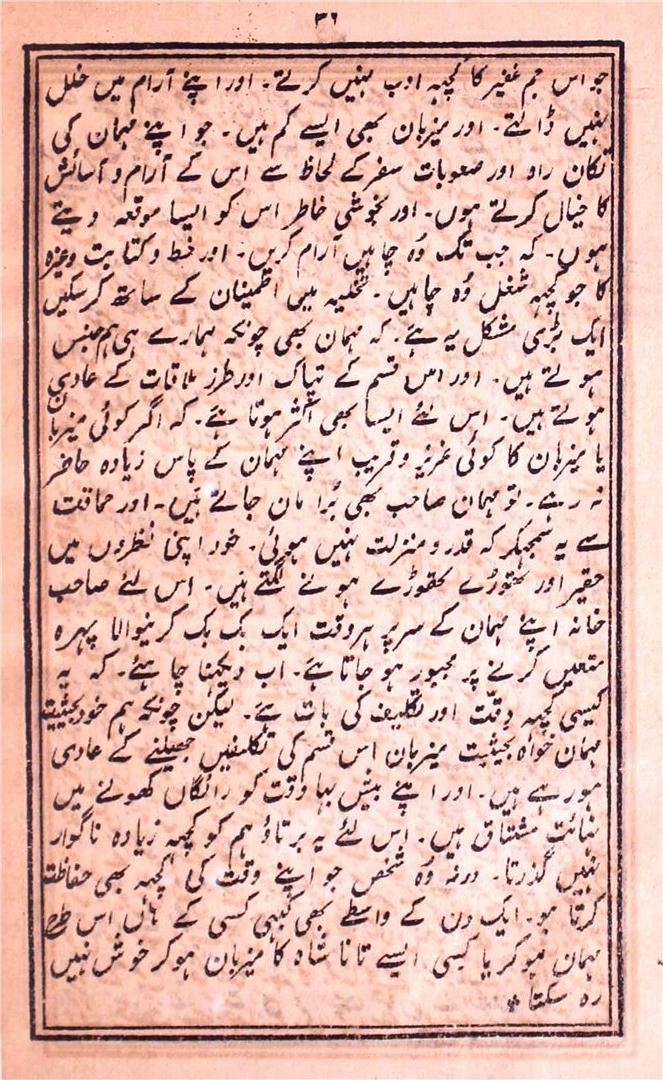 ۳۶
جو اس جم غفیر کا کچہہ ادب نہیں کرتے۔ اور اپنے آرام میں خلل
نہیں ڈالتے۔ اور میزبان بھی ایسے کم ہیں۔ جو اپنے مہمان کی
تکان راہ اور صعوبات سفر کے لحاظ سے اس کے آرام و آسائش
کا خیال کرتے ہوں۔ اور بخوشی خاطر اس کو ایسا موقعہ دیتے
ہوں۔ کہ جب تک وُہ چاہیں آرام کریں۔ اور خط و کتابت وغیرہ
کا جو کچہہ شغل وُہ چاہیں۔ تخلیہ میں اطمینان کے ساتھ کرسکیں
ایک بڑی مشکل یہ ہے۔ کہ مہمان بھی چونکہ ہمارے ہی ہم جنس
ہوتے ہیں۔ اور اس قسم کے تپاک اور طرز ملاقات کے عادی
ہوتے ہیں۔ اس لئے ایسا بھی اکثر ہوتا ہے۔ کہ اگر کوئی میزبان
یا میزبان کا کوئی عزیز و قریب اپنے مہمان کے پاس زیادہ حاضر
نہ رہے۔ تو مہمان صاحب بھی بُرا مان جاتے ہَیں۔ اور حماقت
سے یہ سمجہکر کہ قدر و منزلت نہیں ہوئی۔ خود اپنی نظروں میں
حقیر اور تھوڑے تھوڑے ہونے لگتے ہَیں۔ اس لئے صاحب
خانہ اپنے مہمان کے سر پر ہر وقت ایک بک بک کرنیوالا پہرہ
متعین کرنے پر مجبور ہو جاتا ہے۔ اب دیکہنا چاہئے۔ کہ یہ
کیسی کچہہ دِقّت اور تکلیف کی بات ہے۔ لیکن چونکہ ہم خود بحیثیت
مہمان خواہ بحیثیت میزبان اس قسم کی تکلیفیں جھیلنے کے عادی
ہو رہے ہیں۔ اور اپنے بیش بہا وقت کو رائگاں کھونے میں
نہائت مشتاق ہیں۔ اِس لئے یہ برتاؤ ہم کو کچہہ زیادہ ناگوار
نہیں گذرتا۔ ورنہ وُہ شخص جو اپنے وقت کی کچہہ بھی حفاظت
کرتا ہو۔ ایک دن کے واسطے بھی کبھی کسی کے ہاں اس طرح
مہمان ہو کر یا کسی ایسے تانا شاہ کا میزبان ہوکر خوش نہیں
رہ سکتا ٭